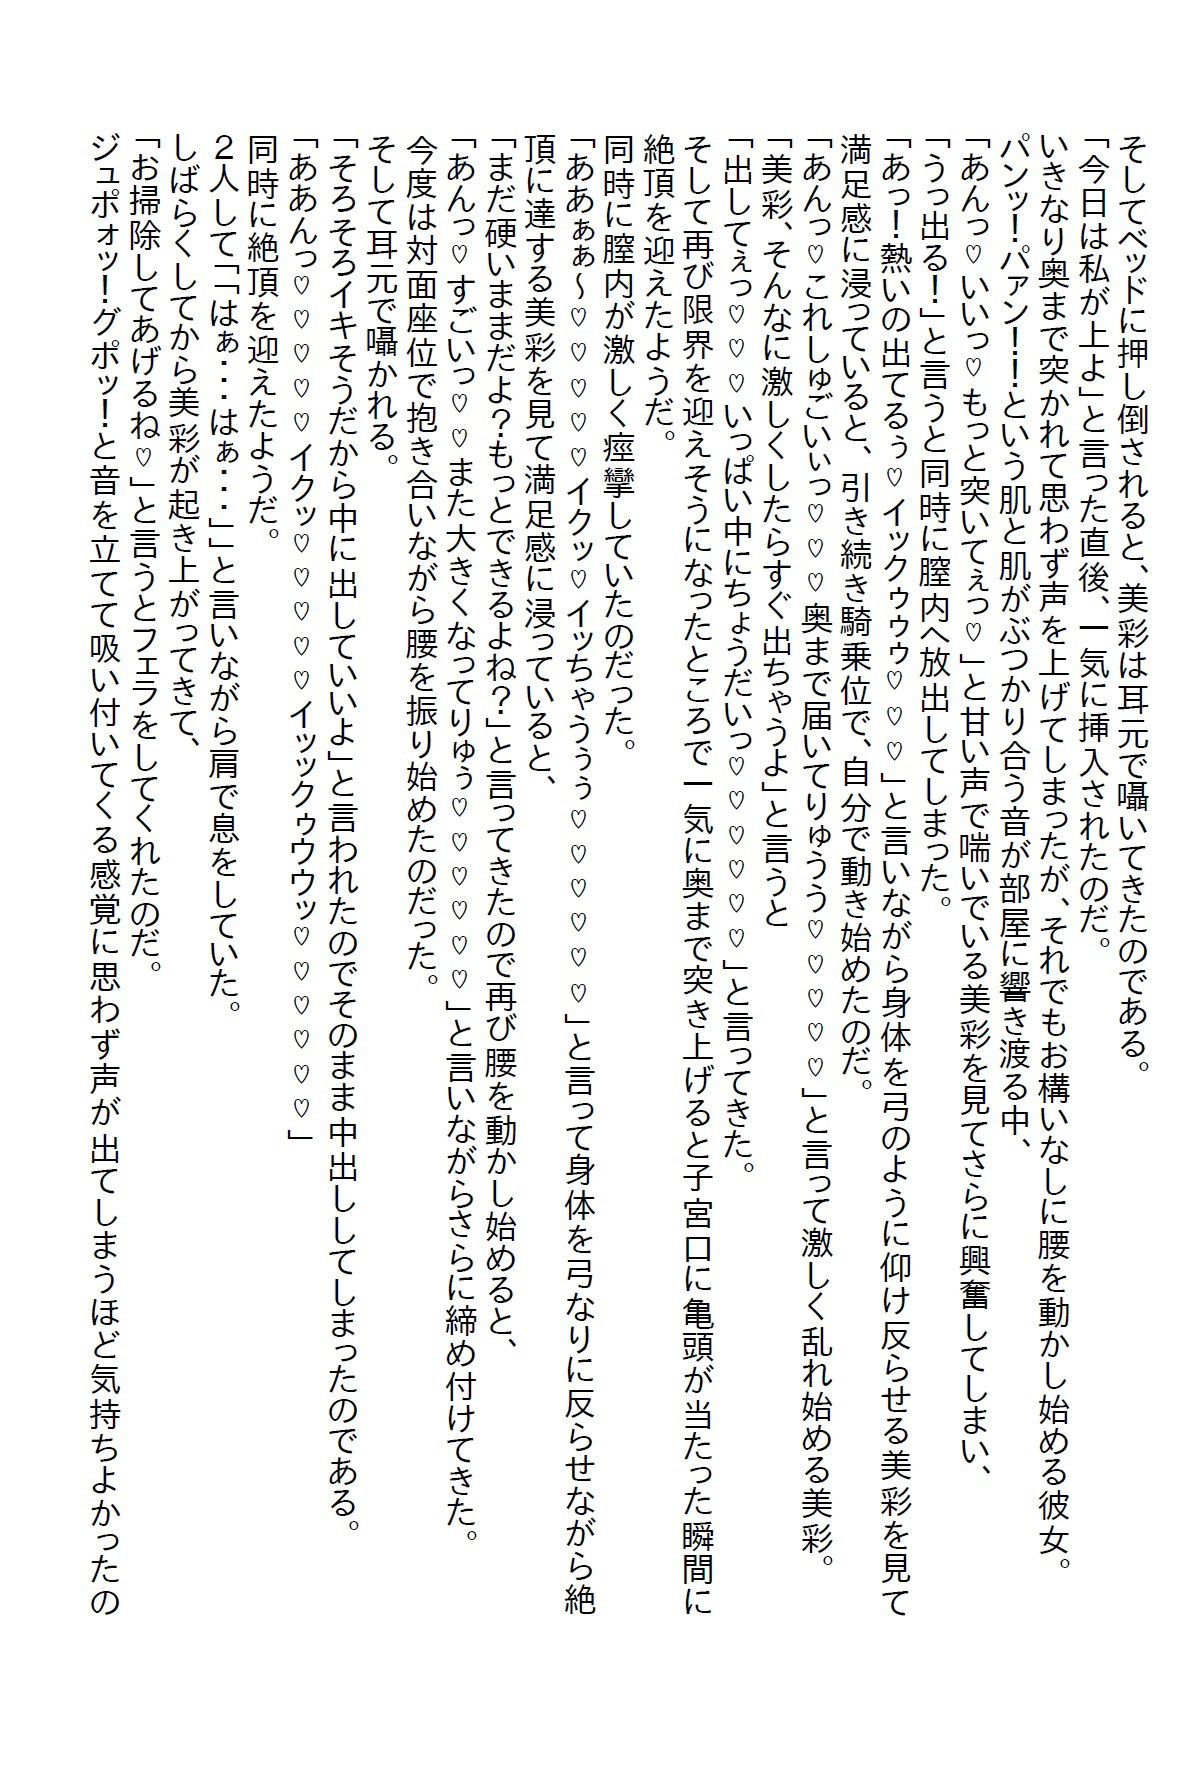 そしてベッドに押し倒されると、美彩は耳元で囁いてきたのである。
「今日は私が上よ」と言った直後、一気に挿入されたのだ。
いきなり奥まで突かれて思わず声を上げてしまったが、それでもお構いなしに腰を動かし始める彼女。
パンッ！パァン！！という肌と肌がぶつかり合う音が部屋に響き渡る中、
「あんっ♡いいっ♡もっと突いてぇっ♡」と甘い声で喘いでいる美彩を見てさらに興奮してしまい、
「うっ出る！」と言うと同時に膣内へ放出してしまった。
「あっ！熱いの出てるぅ♡イックゥゥゥ♡♡♡」と言いながら身体を弓のように仰け反らせる美彩を見て
満足感に浸っていると、引き続き騎乗位で、自分で動き始めたのだ。
「あんっ♡これしゅごいぃっ♡♡♡奥まで届いてりゅうう♡♡♡♡♡」と言って激しく乱れ始める美彩。
「美彩、そんなに激しくしたらすぐ出ちゃうよ」と言うと
「出してぇっ♡♡♡いっぱい中にちょうだいっ♡♡♡♡♡♡」と言ってきた。
そして再び限界を迎えそうになったところで一気に奥まで突き上げると子宮口に亀頭が当たった瞬間に
絶頂を迎えたようだ。
同時に膣内が激しく痙攣していたのだった。
「ああぁぁ～♡♡♡♡♡イクッ♡イッちゃうぅぅ♡♡♡♡♡♡」と言って身体を弓なりに反らせながら絶
頂に達する美彩を見て満足感に浸っていると、
「まだ硬いままだよ？もっとできるよね？」と言ってきたので再び腰を動かし始めると、
「あんっ♡すごいっ♡♡また大きくなってりゅぅ♡♡♡♡♡♡」と言いながらさらに締め付けてきた。
今度は対面座位で抱き合いながら腰を振り始めたのだった。
そして耳元で囁かれる。
「そろそろイキそうだから中に出していいよ」と言われたのでそのまま中出ししてしまったのである。
「ああんっ♡♡♡♡♡イクッ♡♡♡♡♡イッックゥウウッ♡♡♡♡♡♡」
同時に絶頂を迎えたようだ。
２人して「「はぁ・・・はぁ・・・」」と言いながら肩で息をしていた。
しばらくしてから美彩が起き上がってきて、
「お掃除してあげるね♡」と言うとフェラをしてくれたのだ。
ジュポォッ！グポッ！と音を立てて吸い付いてくる感覚に思わず声が出てしまうほど気持ちよかったの